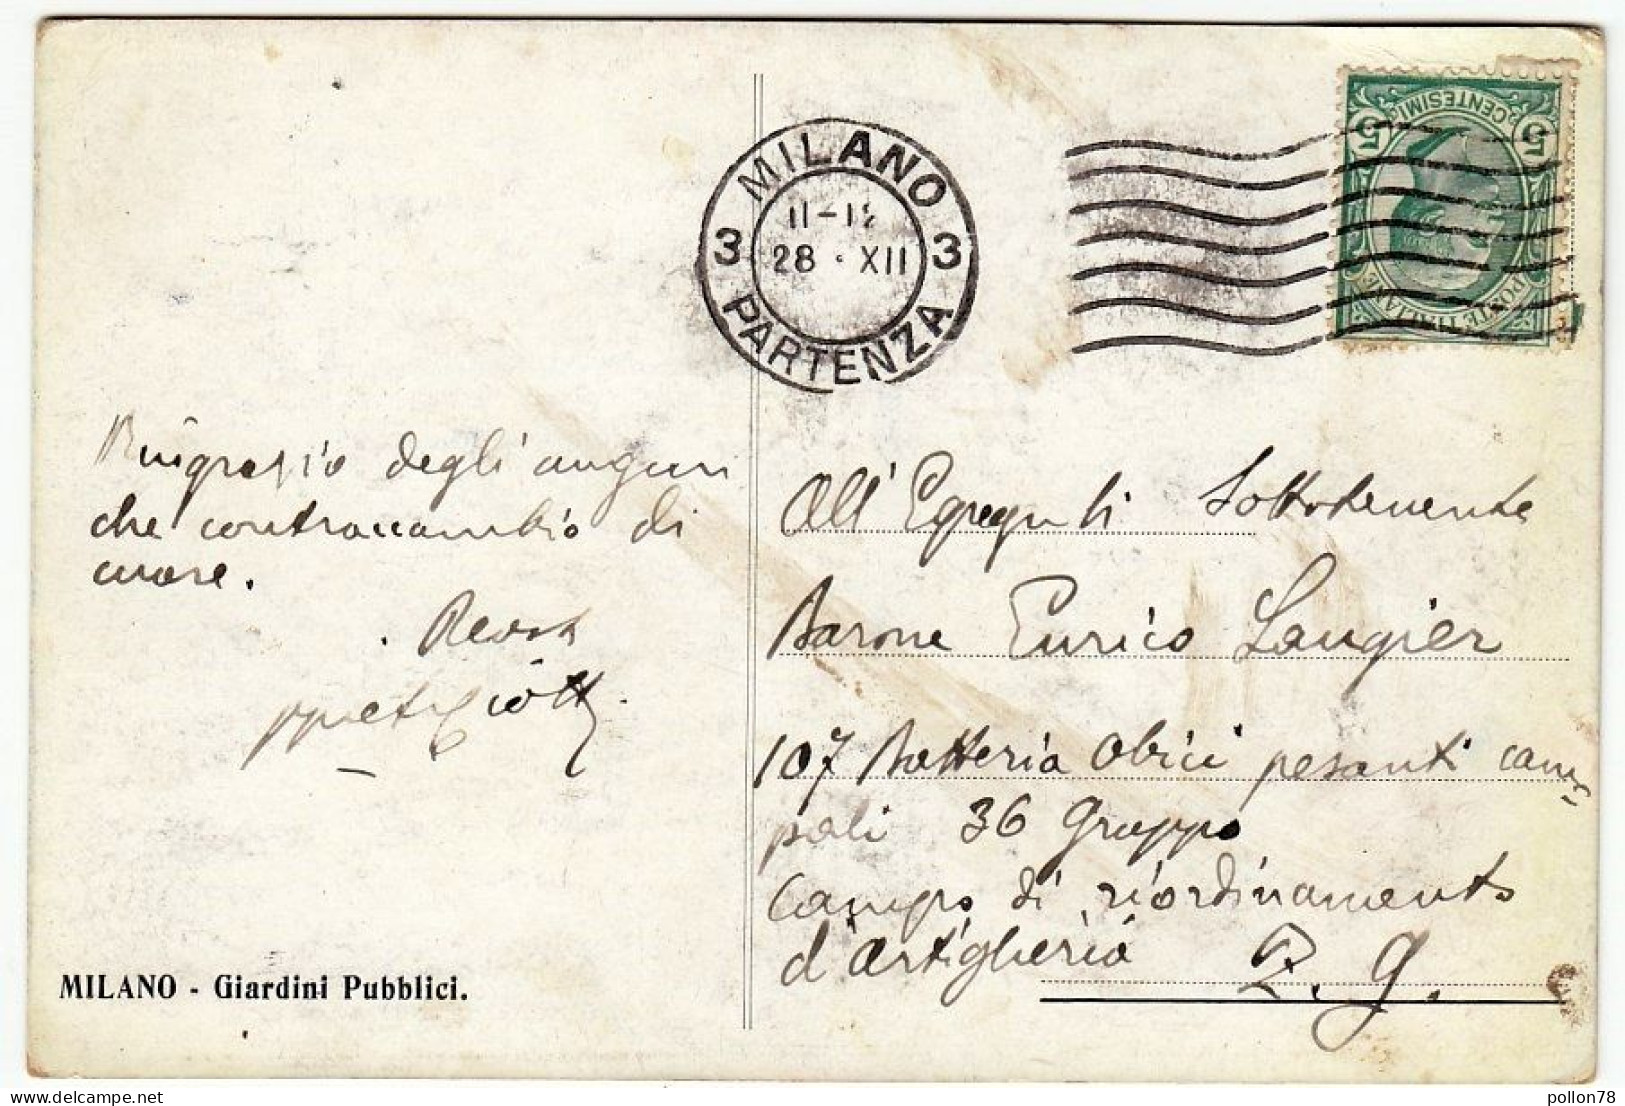 MILANO
3 11-12 3
28 · XII
PARTENZA
5 CENTESIMI 5
POSTE ITALIANE
Ringrazio degli auguri
che contraccambio di
cuore.
All'Egregi Sottotenente
Barone Enrico Laugier
107 Batteria Obici pesanti cam-
pali 36 Gruppo
Campo di riordinamento
d'artiglieria Z. G.
MILANO - Giardini Pubblici.
pollon78